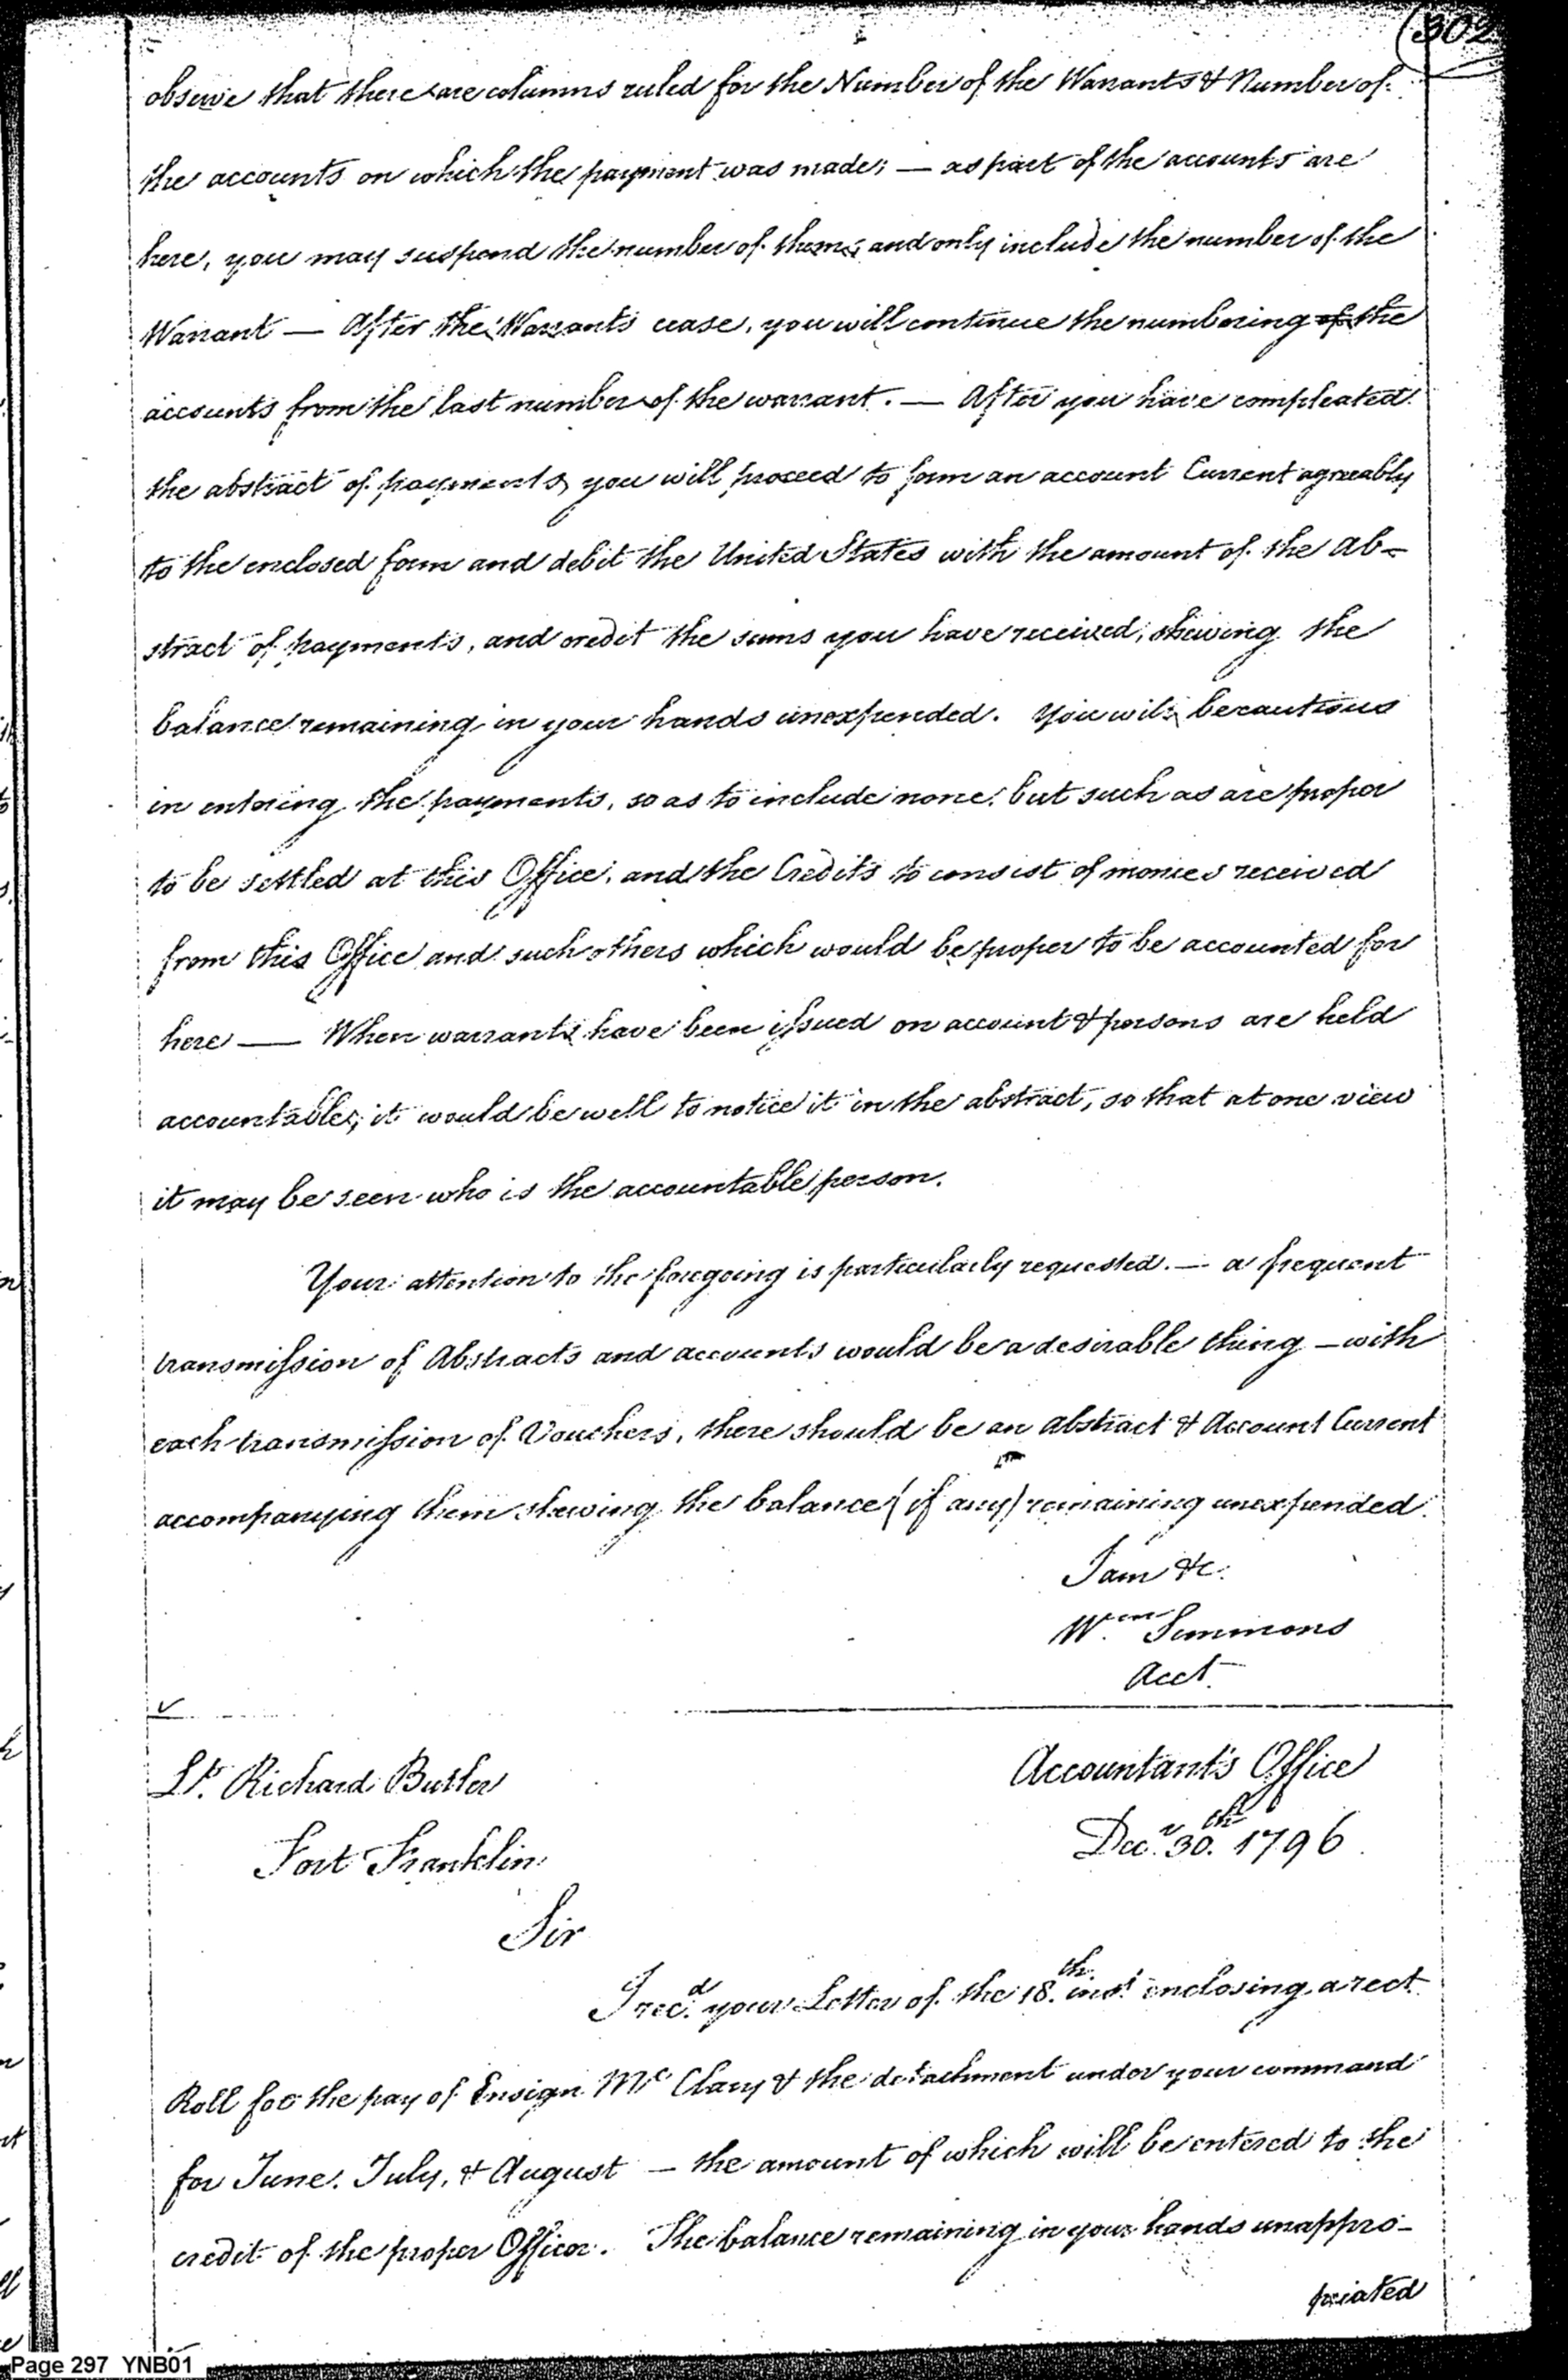 (302
observe that there are columns ruled for the Number of the Warrants & Number of
the accounts on which the payment was made; — as part of the accounts are
here, you may suspend the number of them, and only include the number of the
Warrant — After the Warrants cease, you will continue the numbering of the
accounts from the last number of the warrant. — After you have compleated
the abstract of payments, you will proceed to form an account Current agreeably
to the enclosed form and debit the United States with the amount of the Ab-
stract of payments, and credit the sums you have received, shewing the
balance remaining in your hands unexpended. You will be cautious
in entering the payments, so as to include none but such as are proper
to be settled at this Office, and the Credits to consist of monies received
from this Office and such others which would be proper to be accounted for
here — When warrants have been issued on account & persons are held
accountable, it would be well to notice it in the abstract, so that at one view
it may be seen who is the accountable person.
Your attention to the foregoing is particularly requested. — a frequent
transmission of Abstracts and accounts would be a desirable thing — with
each transmission of Vouchers, there should be an abstract & Account Current
accompanying them shewing the balance (if any) remaining unexpended.
I am &c.
Wm. Simmons
Acct.
Lt. Richard Butler
Fort Franklin
Accountant's Office
Decr. 30.th 1796
Sir
I recd. your Letter of the 18.th inst. enclosing a rect.
Roll for the pay of Ensign McClary & the detachment under your command
for June, July, & August — the amount of which will be entered to the
credit of the proper Officer. The balance remaining in your hands unappro-
priated
Page 297 YNB01